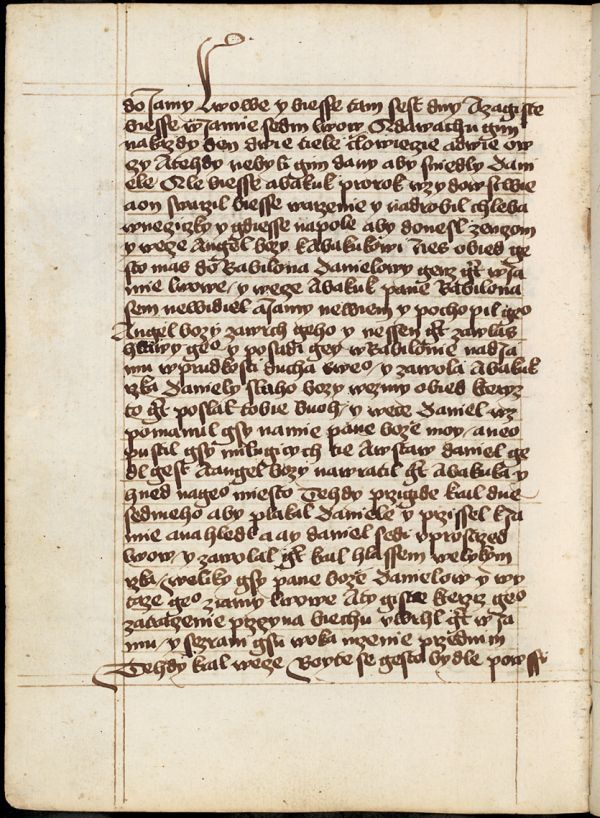 do Jamy Lwowe y biesse tam sest dny Azagiste
biesse w Jamie sedm lwow Oddawachu gim
nakazdy den dwie tiele czlowiecie adwie ow
czy Atehdy nebyli gim dany aby sniedly Dani
ele Ale biesse abakuk prorok w zydowstwie
aon swarzil biesse warzenie y nadrobil chleba
wneczicky y gdiesse napole aby donesl zenczom
y wece Angel bozy kabakukowi nes obied ge
sto mas do Babilona Danielowy genz gt w Ja
mie lwowe / y wece Abakuk pane Babilona
sem newidiel a Jamy newiem y pochopil geo
Angel bozy zawrch geho y nessen gt zawlas
hlawy geo y posadi gey w Babilonie nad Ja
mu w prudkosti ducha sweo / y zawola Abakuk
rzka Daniely sluho bozy wezmy obied kterz
to gt poslal tobie buoh / y wece Daniel wz
pomanul gsy namie pane boze moy / aneo
pustil gsy milugicych tie Awstaw daniel ge
dl gest Aangel bozy nawratil gt Abakuka y
hned nageo miesto Tehdy przigide kral dne
sedmeho aby plakal Daniele y przissel k Ja
mie anahledl a ay daniel sedi vprostrzed
lwow / y zawolal gt kral hlassem welykym
rzka / weliky gsy pane boze Danielow y wy
taze geo z iamy lwowe Aty giste kterziz geo
zatracenie przyczyna biechu vwrhl gt w Ja
mu / y sezrani gsu woka mzenie przednim
Tehdy kral wece Boyte se gesto bydle powssi